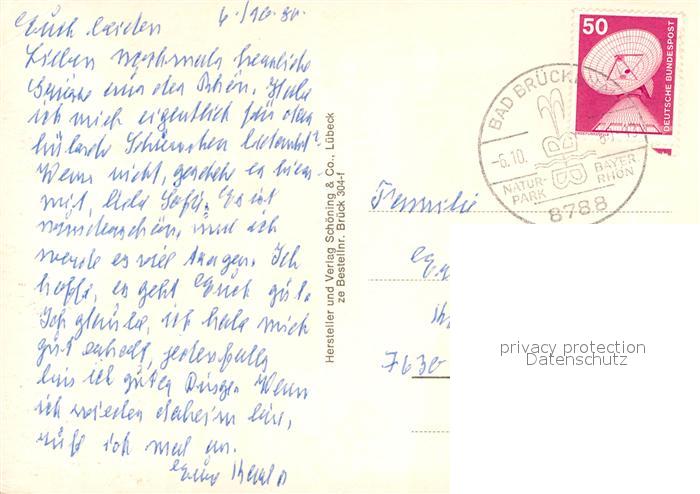 Euch beiden 6./10.80.
Lieben nochmals herzliche
Grüsse aus der Rhön. Habe
ich mich eigentlich für das
hübsche bedankt?
Wenn nicht, geschehe es hier-
mit, liebe Es ist
wunderschön, und ich
werde es viel tragen. Ich
hoffe, es geht Euch gut.
Ich glaube, ich habe mich
gut erholt, jedenfalls
bin ich guter Dinge. Wenn
ich wieder daheim bin,
rufe ich mal an.
Eure
Hersteller und Verlag Schöning & Co., Lübeck
ze Bestellnr. Brück 304-f
50
DEUTSCHE BUNDESPOST
BAD BRÜCK
-6.10.
NATUR-
PARK
BAYER
RHÖN
8788
Familie
7630
privacy protection
Datenschutz